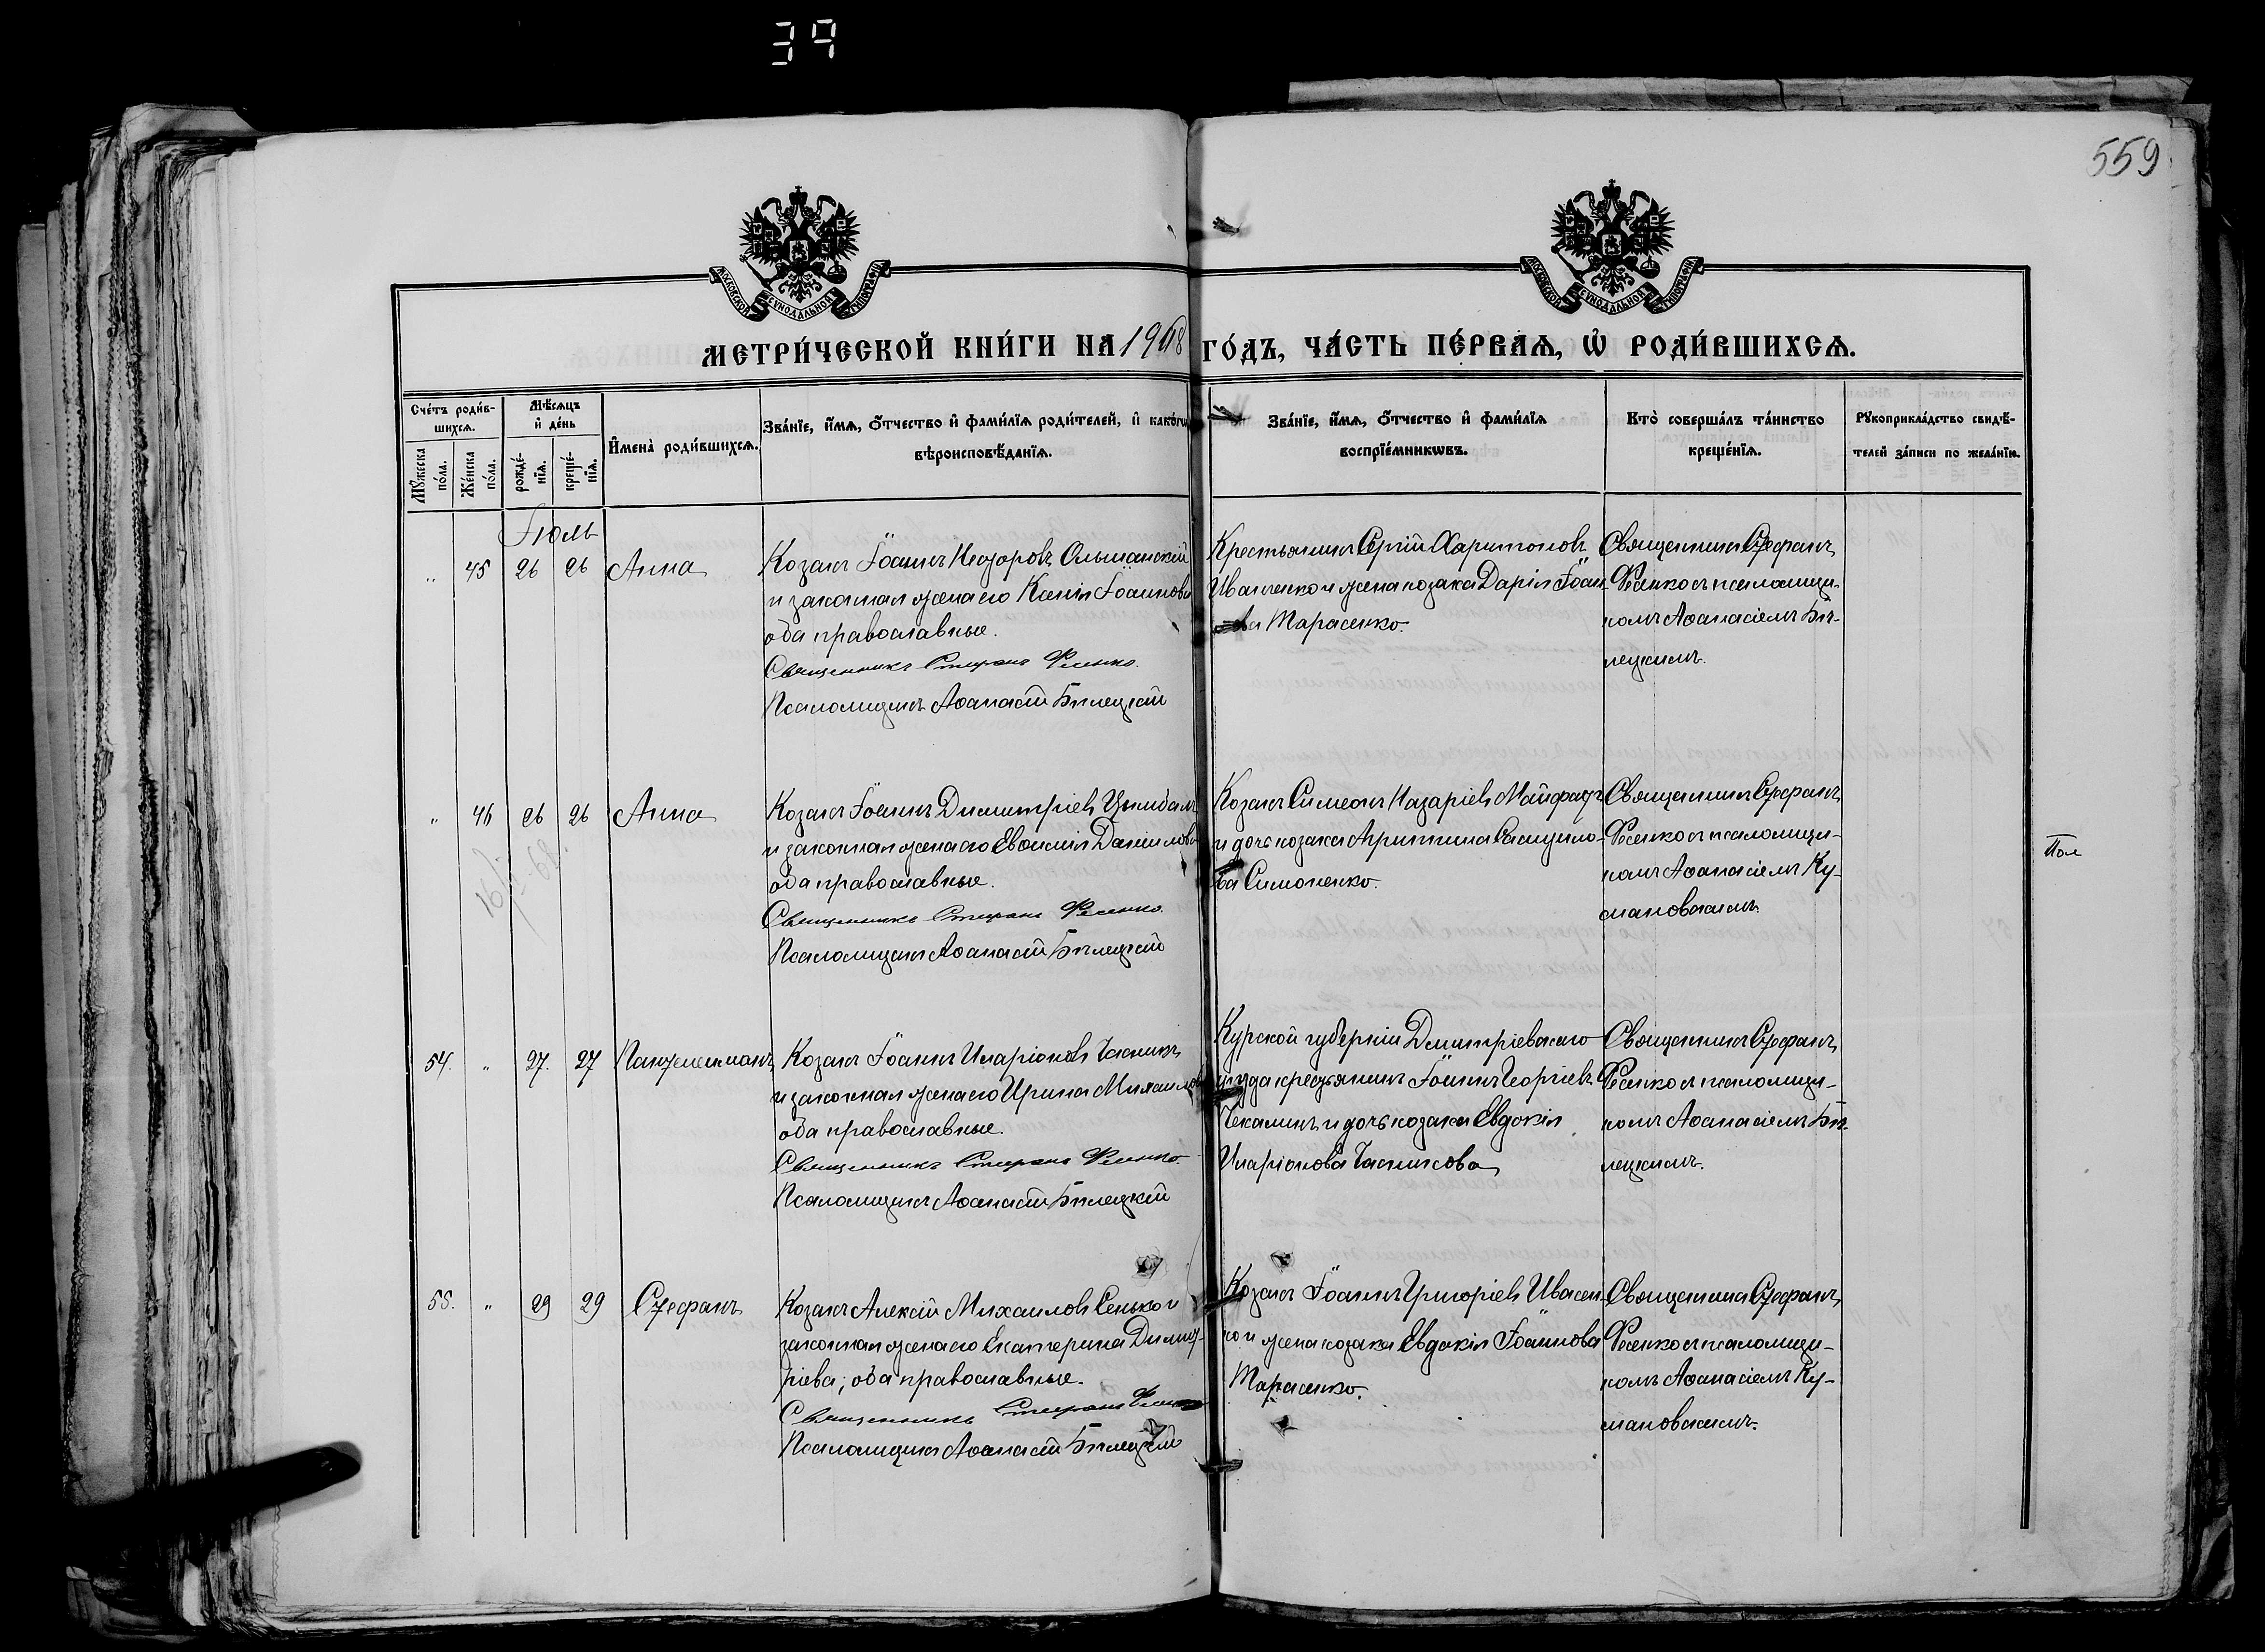 39
559
МОСКОВСКОЙ СѴНОДАЛЬНОЙ ТИПОГРАФІИ
МОСКОВСКОЙ СѴНОДАЛЬНОЙ ТИПОГРАФІИ
МЕТРИ́ЧЕСКОЙ КНИ́ГИ НА 1908 ГО́ДЪ, ЧА́СТЬ ПЕ́РВАѦ, Ѽ РОДИ́ВШИХСѦ.
Сче́тъ роди́в-
шихсѧ.
Мꙋ́жеска по́ла.
Же́нска по́ла.
Мѣ́сѧцъ и҆ де́нь
рожде́-нїѧ.
креще́-нїѧ.
И҆мена̀ роди́вшихсѧ.
Зва́нїе, и҆́мѧ, ѻ҆́тчество и҆ фами́лїѧ роди́телей, и҆ како́гѡ
вѣроисповѣ́данїѧ.
Зва́нїе, и҆́мѧ, ѻ҆́тчество и҆ фами́лїѧ
воспрїе́мникѡвъ.
Кто̀ соверша́лъ та́инство
креще́нїѧ.
Рꙋкоприкла́дство свидѣ́-
телей за́писи по жела́нїю.
Іюль
" 45 26 26 Анна
Козакъ Іоаннъ Ѳеодоровъ Ольшанскій
и законная жена его Ксенія Іоаннова
оба православные.
Священникъ Стефанъ Фесенко.
Псаломщикъ Аѳанасій Бѣлецкій
Крестьянинъ Сергій Харитоновъ
Иванченко и жена козака Дарія Іоан-
ва Тарасенко.
Священникъ Стефанъ
Фесенко съ псаломщи-
комъ Аѳанасіемъ Бѣ-
лецкимъ.
" 46 26 26 Анна
Козакъ Іоаннъ Димитріевъ Цымбалъ
и законная жена его Евѳимія Даніилова
оба православные.
Священникъ Стефанъ Фесенко.
Псаломщикъ Аѳанасій Бѣлецкій
Козакъ Симеонъ Назаріевъ Майфатъ
и дочь козака Агриппина Самуило-
ва Симоненко.
Священникъ Стефанъ
Фесенко съ псаломщи-
комъ Аѳанасіемъ Ку-
мановскимъ.
Пол
54. " 27. 27 Пантелеимонъ
Козакъ Іоаннъ Иларіоновъ Часникъ
и законная жена его Ирина Михаилова
оба православные.
Священникъ Стефанъ Фесенко.
Псаломщикъ Аѳанасій Бѣлецкій
Курской губерніи Дмитріевскаго
уѣзда крестьянинъ Іоаннъ Георгіевъ
Чекалинъ и дочь козака Евдокія
Иларіонова Часникова
Священникъ Стефанъ
Фесенко съ псаломщи-
комъ Аѳанасіемъ Бѣ-
лецкимъ.
55. " 29 29 Стефанъ
Козакъ Алексій Михаиловъ Сенько и
законная жена его Екатерина Димит-
ріева; оба православные.
Священникъ Стефанъ Фесенко
Псаломщикъ Аѳанасій Бѣлецкій
Козакъ Іоаннъ Григоріевъ Ивасен-
ко и жена козака Евдокія Іоаннова
Тарасенко.
Священникъ Стефанъ
Фесенко съ псаломщи-
комъ Аѳанасіемъ Ку-
мановскимъ.